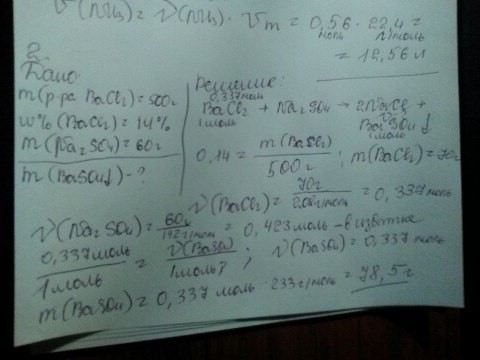 V(NH₃) = ν(NH₃) · Vm = 0,56 моль · 22,4 л/моль =
= 12,56 л
2.
Дано:
m(р-ра BaCl₂) = 500г
w% (BaCl₂) = 14%
m(Na₂SO₄) = 60г
m(BaSO₄↓) - ?
Решение:
0,337моль
BaCl₂ + Na₂SO₄ → 2NaCl +
BaSO₄↓
1моль 1моль
0,14 = m(BaCl₂) / 500г ; m(BaCl₂) = 70г
ν(BaCl₂) = 70г / 208г/моль = 0,337моль
ν(Na₂SO₄) = 60г / 142г/моль = 0,423моль – в избытке
0,337моль / 1моль = ν(BaSO₄) / 1моль ; ν(BaSO₄) = 0,337 моль
m(BaSO₄) = 0,337 моль · 233г/моль = 78,5г